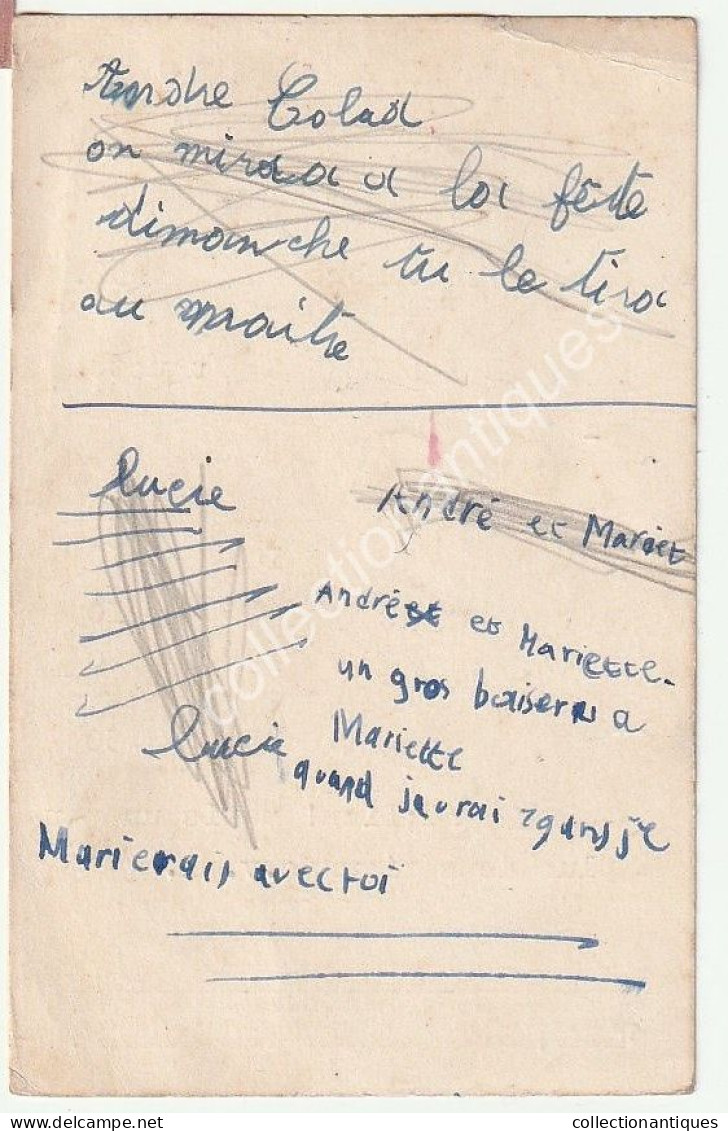 Andre Colad
on miraa a la fête
dimanche tu le tira
au maitre
lucie
André et Mariet
André et Mariette.
un gros baiser a
Mariette
lucie
quand jaurai ans je
Marierais avec toi
collectionantiques
collectionantiques